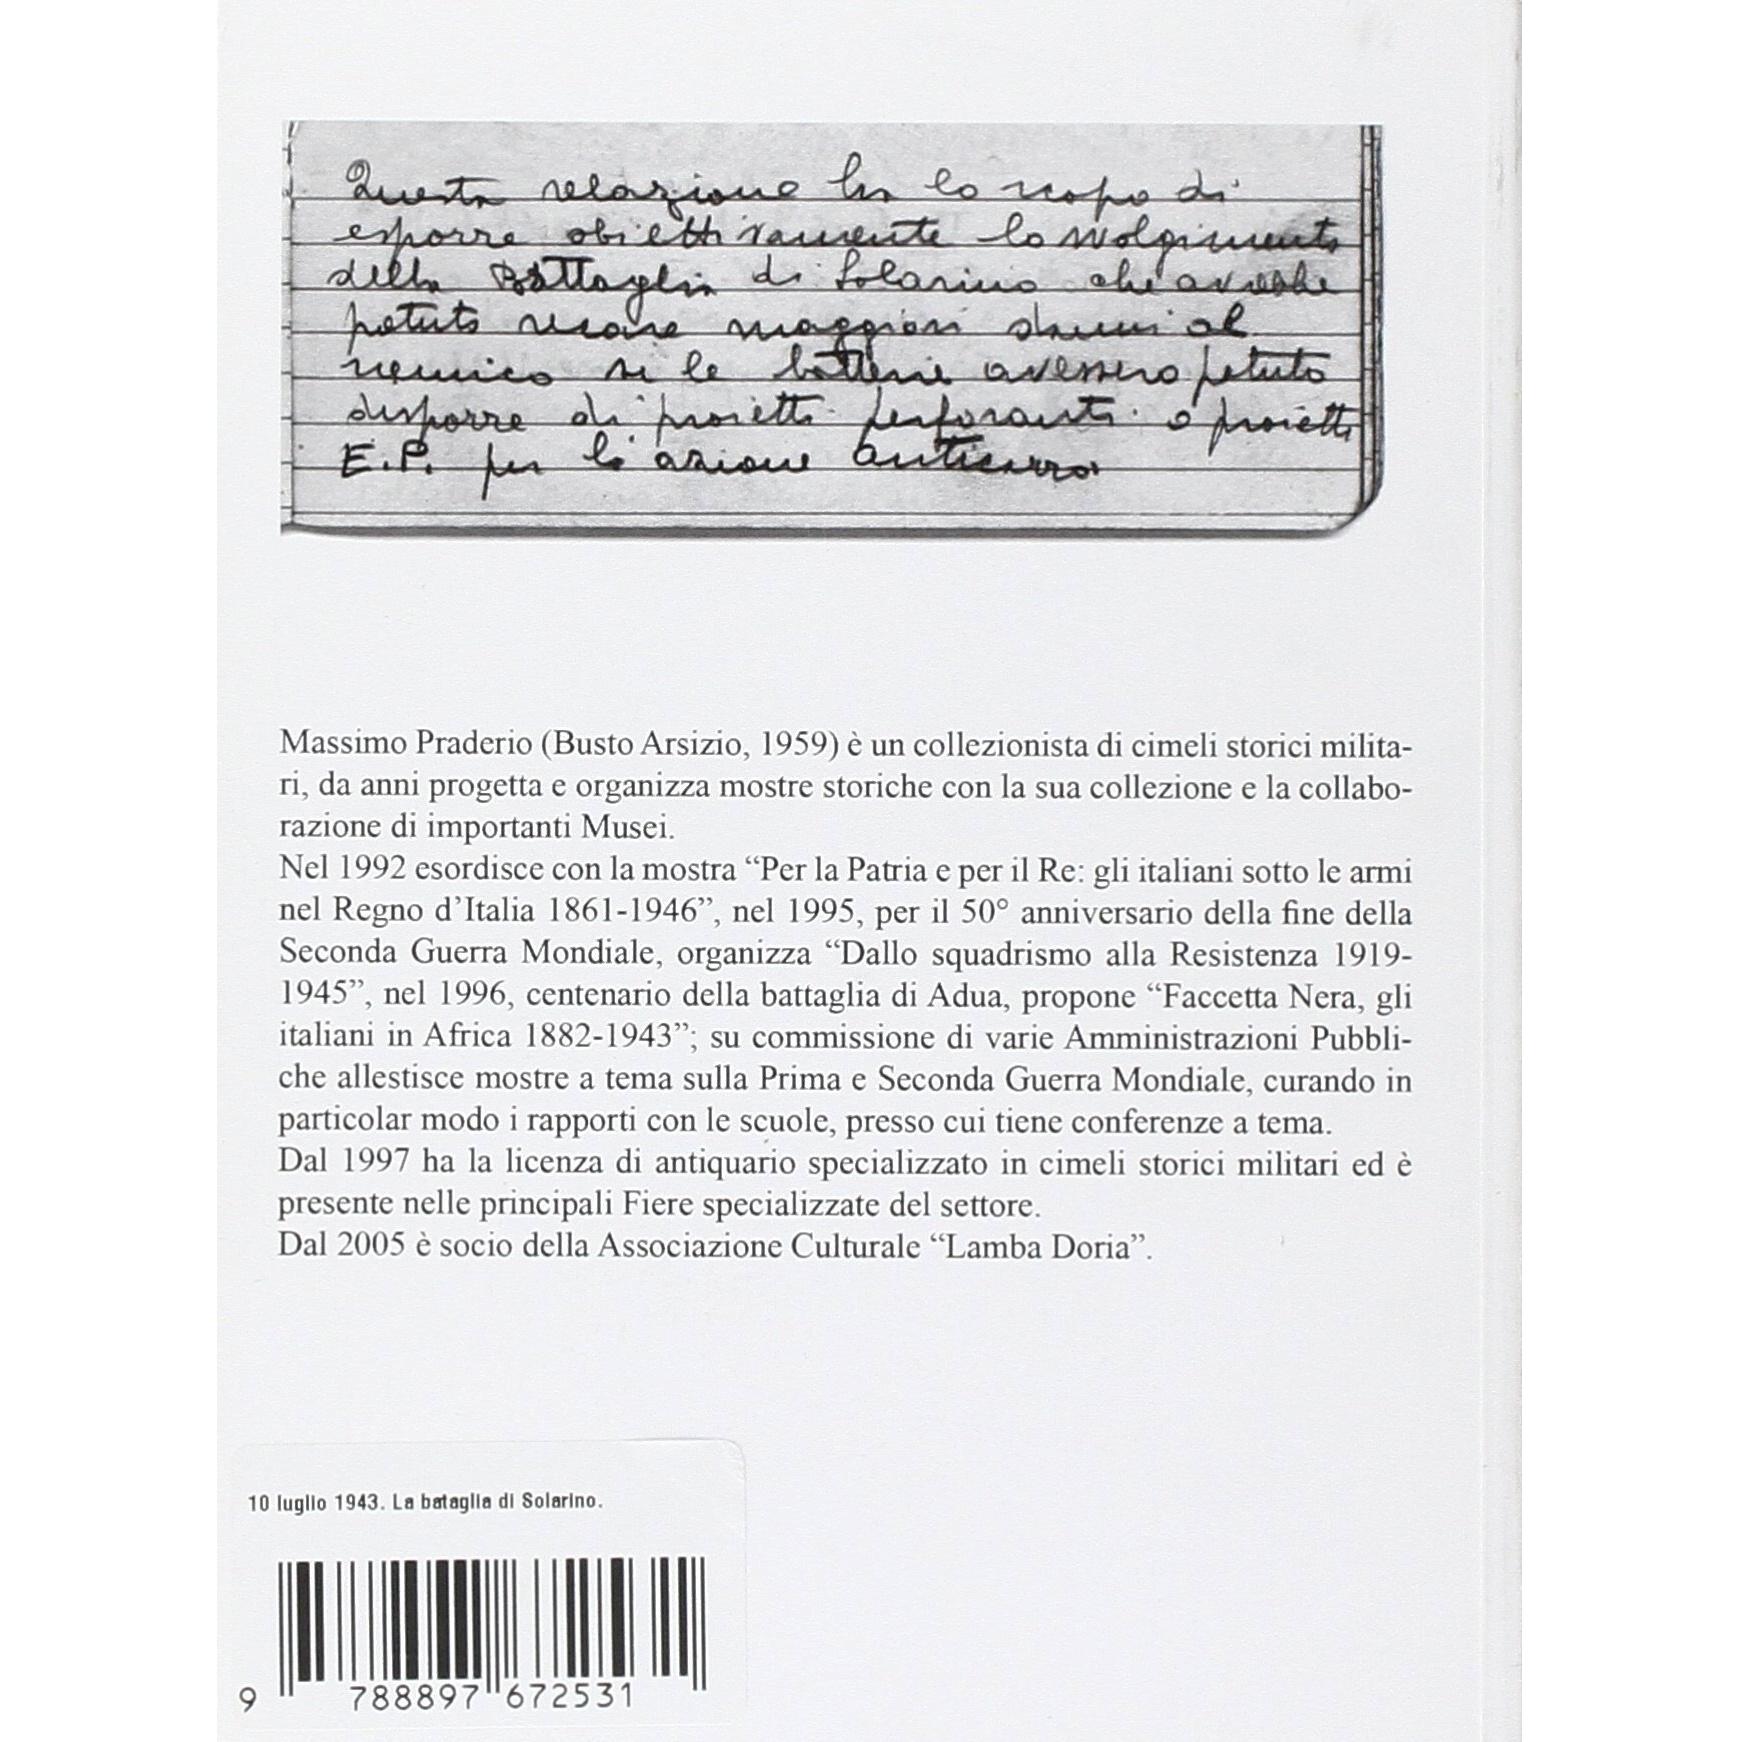 Questa relazione ha lo scopo di
esporre obiettivamente lo svolgimento
della Battaglia di Solarino che avrebbe
potuto recare maggiori danni al
nemico se le batterie avessero potuto
disporre di proietti perforanti o proietti
E.P. per l'azione anticarro.
Massimo Praderio (Busto Arsizio, 1959) è un collezionista di cimeli storici milita-
ri, da anni progetta e organizza mostre storiche con la sua collezione e la collabo-
razione di importanti Musei.
Nel 1992 esordisce con la mostra “Per la Patria e per il Re: gli italiani sotto le armi
nel Regno d’Italia 1861-1946”, nel 1995, per il 50° anniversario della fine della
Seconda Guerra Mondiale, organizza “Dallo squadrismo alla Resistenza 1919-
1945”, nel 1996, centenario della battaglia di Adua, propone “Faccetta Nera, gli
italiani in Africa 1882-1943”; su commissione di varie Amministrazioni Pubbli-
che allestisce mostre a tema sulla Prima e Seconda Guerra Mondiale, curando in
particolar modo i rapporti con le scuole, presso cui tiene conferenze a tema.
Dal 1997 ha la licenza di antiquario specializzato in cimeli storici militari ed è
presente nelle principali Fiere specializzate del settore.
Dal 2005 è socio della Associazione Culturale “Lamba Doria”.
10 luglio 1943. La bataglia di Solarino.
9 788897 672531